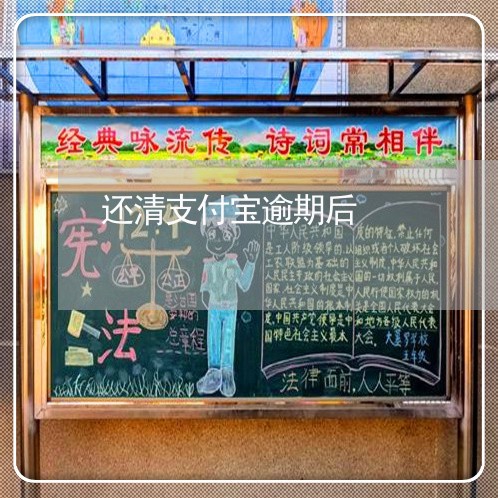 经典咏流传 诗词常相伴
还清支付宝逾期后
宪法
12·4
公平
公正
总章程
中华人民共和国
是工人阶级领导的,以
工农联盟为基础的
人民民主专政的社会主义
国家,社会主义制度是中
华人民共和国的根本制
度,中国共产党领导是中
国特色社会主义最本
质的特征,禁止任何
组织或者个人破坏社会
主义制度,中华人民共和
国的一切权利属于人民,
人民行使国家权力的机
关是全国人民代表大会
和地方各级人民代表
大会。
五年级
法律面前,人人平等